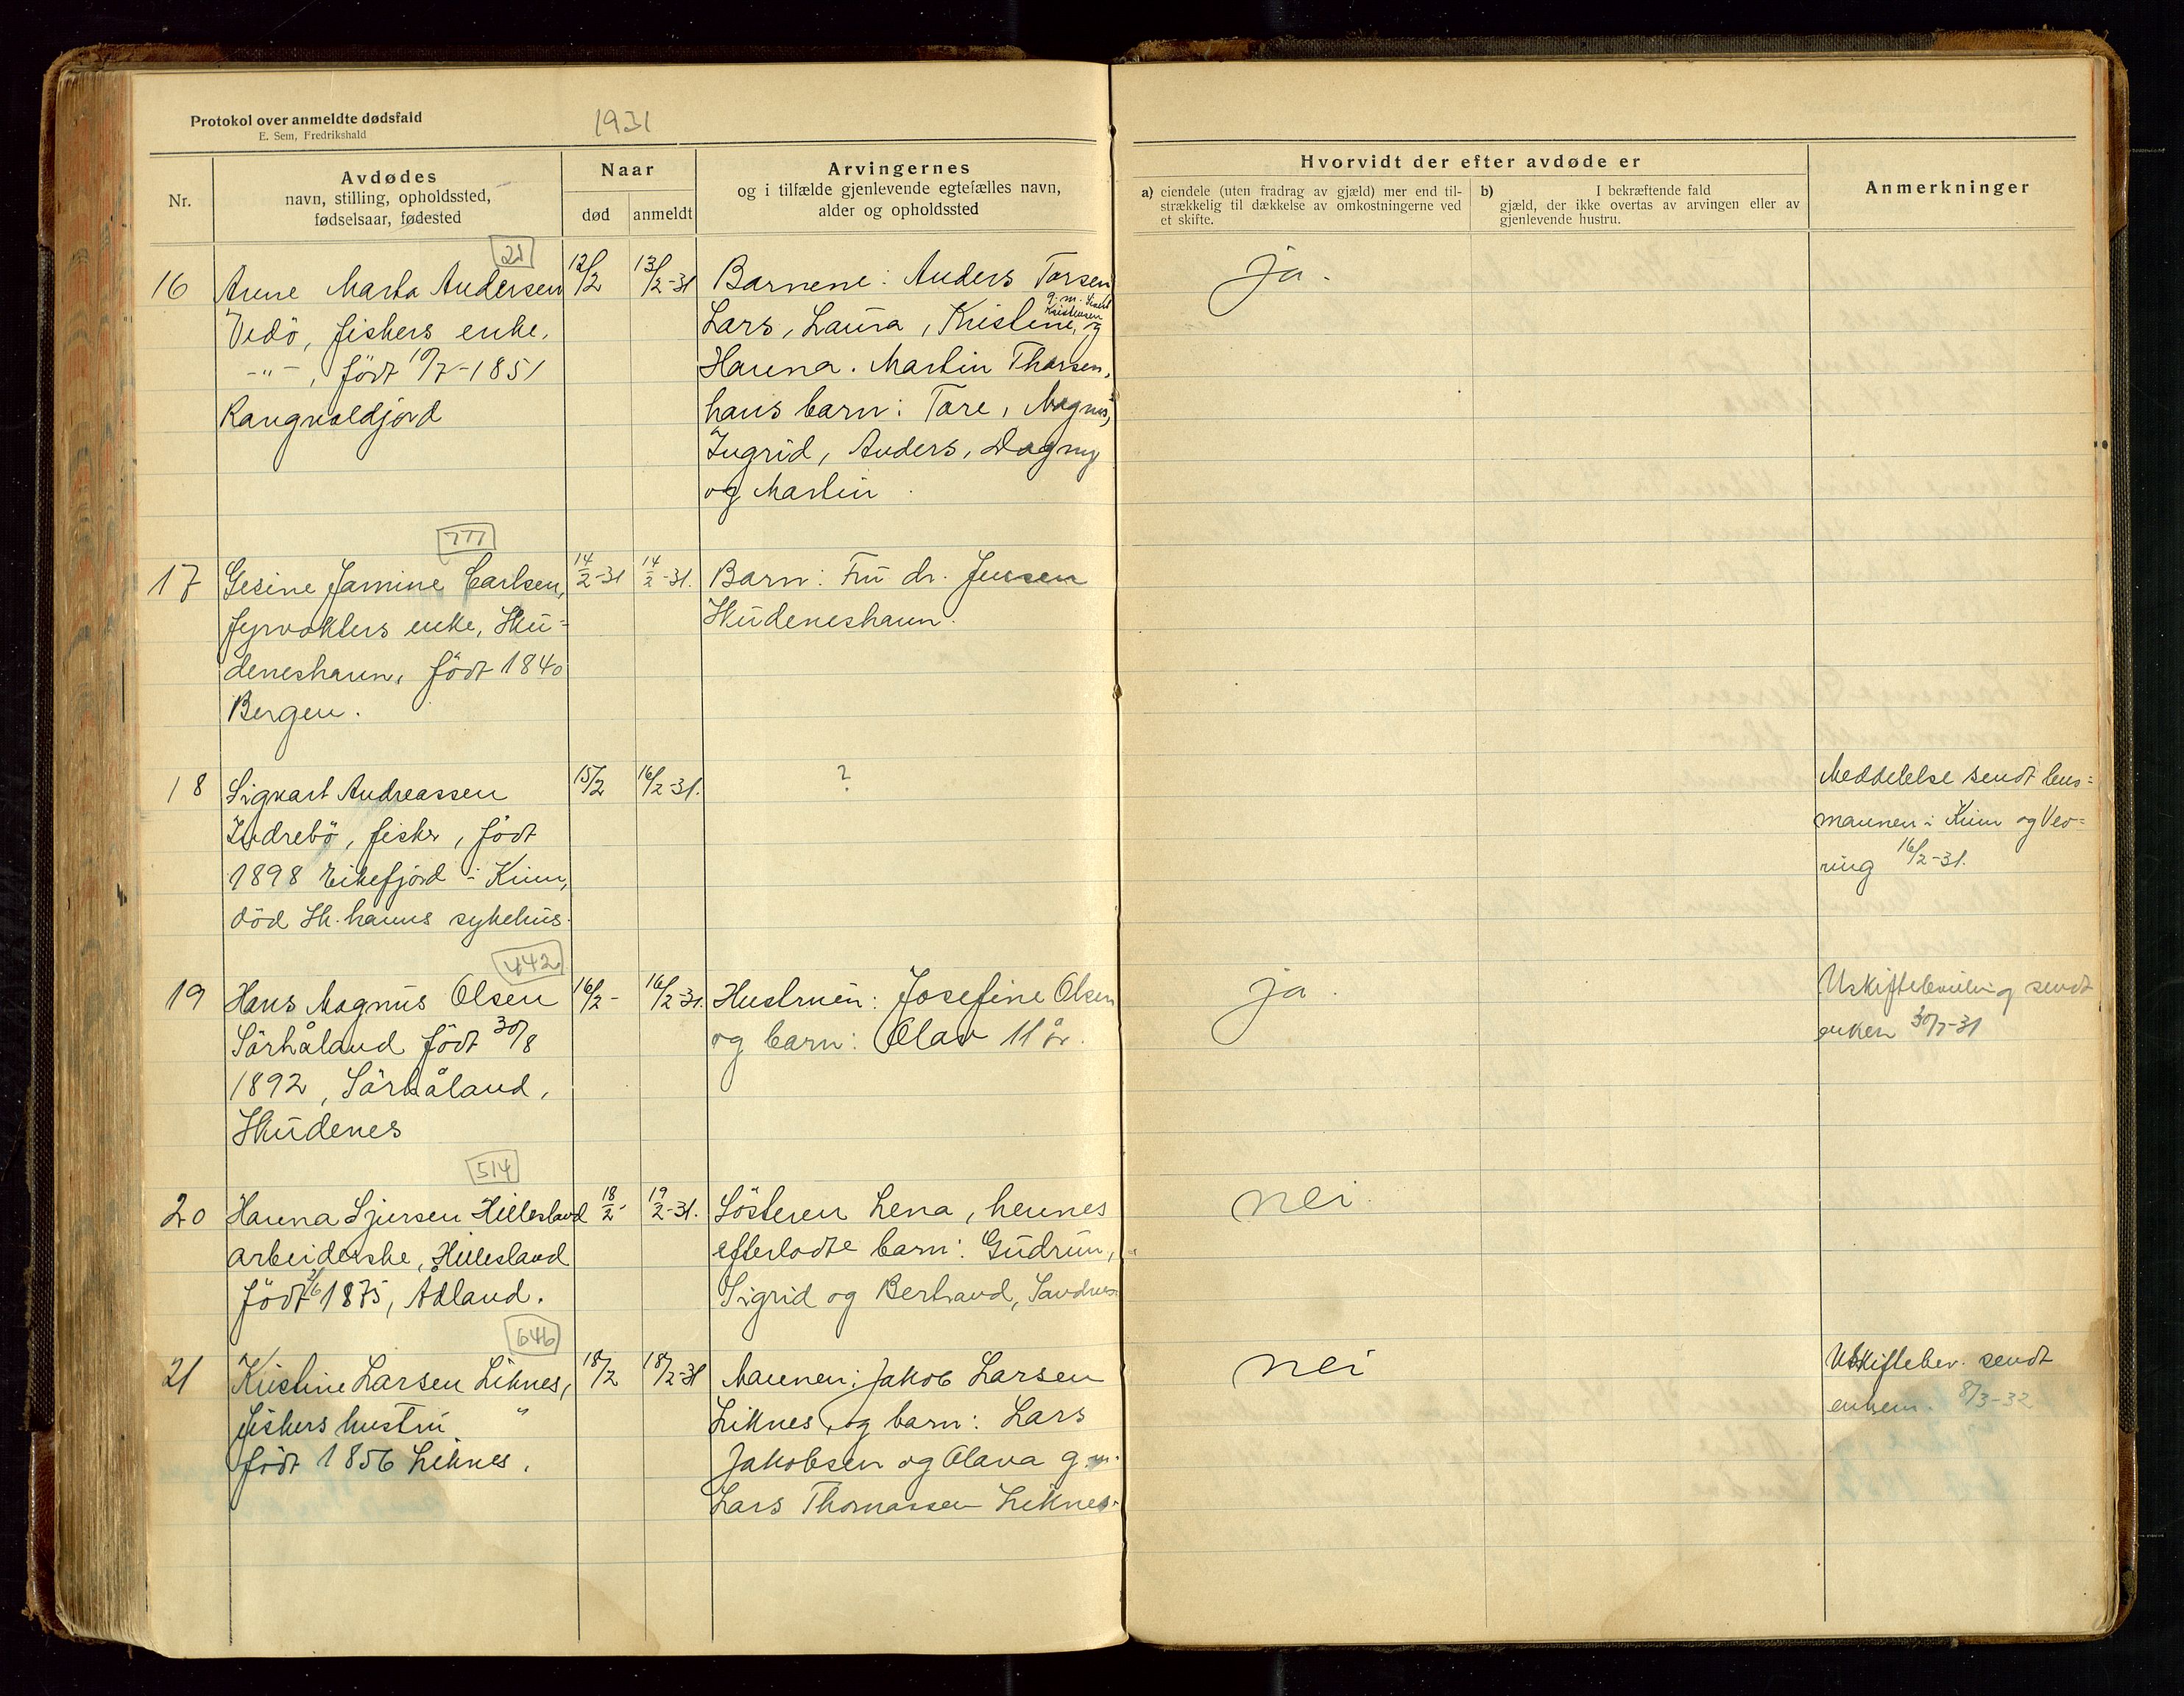 Protokol over anmeldte dødsfald
E. Sem, Fredrikshald
1931
Nr.
Avdødes
navn, stilling, opholdssted,
fødselsaar, fødested
Naar
død
anmeldt
Arvingernes
og i tilfælde gjenlevende egtefælles navn,
alder og opholdssted
Hvorvidt der efter avdøde er
a) eiendele (uten fradrag av gjæld) mer end til-
strækkelig til dækkelse av omkostningerne ved
et skifte.
b) I bekræftende fald
gjæld, der ikke overtas av arvingen eller av
gjenlevende hustru.
Anmerkninger
16
Anne Marta Andersen
Vedö, fiskers enke,
-"-, födt 10/7-1851
Rangvaldjord
12/2
13/2-31
Barnene: Anders Torsen
Lars, Laura, Kristine, g.m. Kristensen og
Hanna. Martin Thorsen,
hans barn: Tore, Magnus,
Ingrid, Anders, Dagny
og Martin.
ja.
17
777
Gesine Jamine Carlsen,
fyrvokters enke, Sku=
deneshavn, födt 1840
Bergen.
14/2-31
14/2-31.
Barn: Fru dr. Jensen
Skudeneshavn.
18
Sigvart Andreassen
Indrebö, fisker, födt
1898 Eikefjord i Kinn,
död Sk.havns sykehus.
15/2
16/2-31.
?
Meddelelse sendt lens=
mannen i Kinn og Vev=
ring 16/2-31.
19
442
Hans Magnus Olsen
Sörhåland födt 30/8
1892, Sörhåland,
Skudenes
16/2-
16/2-31.
Hustruen: Josefine Olsen
og barn: Olav 11 år.
ja.
Uskiftebevilling sendt
enken 30/7-31
20
514
Hanna Sjursen Hillesland
arbeiderske, Hillesland
födt 2/6 1875, Ådland.
18/2-
19/2-31.
Sösteren Lena, hennes
efterladte barn: Gudrun,
Sigrid og Bertrand, Sandnes.
nei.
21
646
Kristine Larsen Liknes,
fiskers hustru "
födt 1856 Liknes.
18/2
18/2-31
Mannen: Jakob Larsen
Liknes, og barn: Lars
Jakobsen og Olava g.m.
Lars Thomassen Liknes.
nei
Uskiftebev. sendt
8/3-32